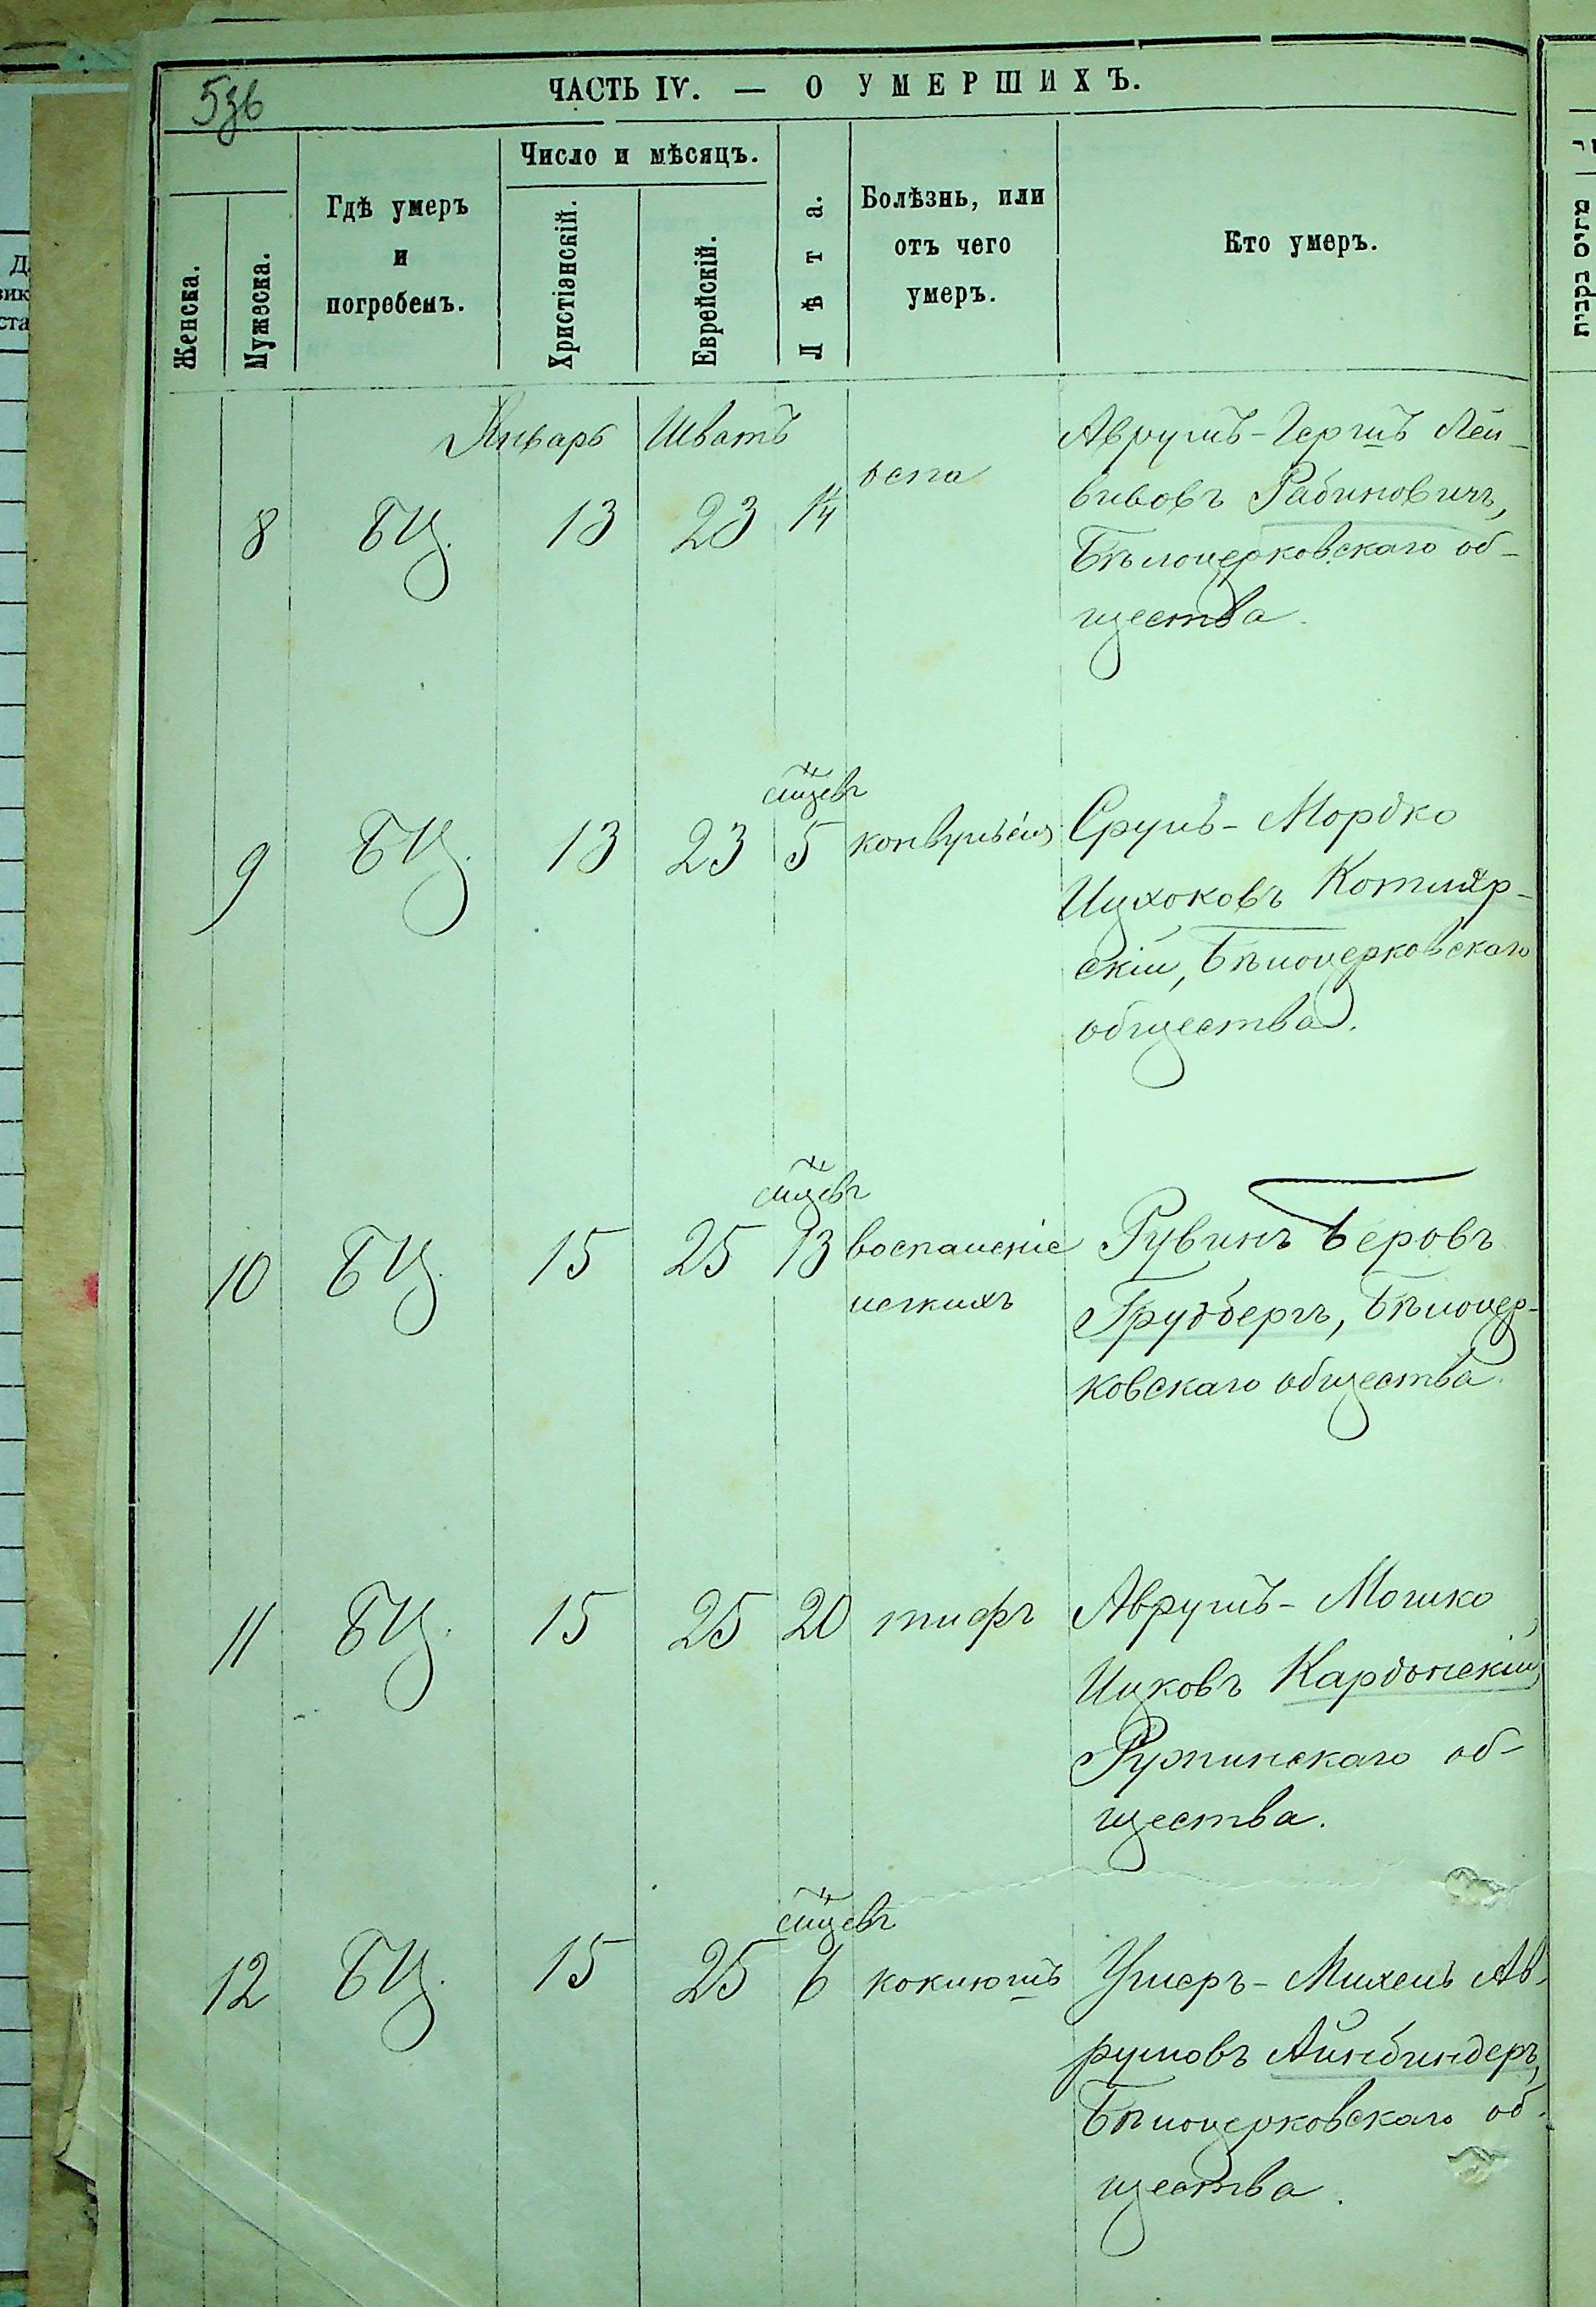 ЧАСТЬ IV. — О УМЕРШИХЪ.
Женска.
Мужеска.
Гдѣ умеръ
и
погребенъ.
Число и мѣсяцъ.
Христіанскій.
Еврейскій.
Лѣта.
Болѣзнь, или
отъ чего
умеръ.
Кто умеръ.
Январь Шватъ
8 БЦ. 13 23 оспа
Аврумъ-Гершъ Лей-
бивовъ Рабиновичъ,
Бѣлоцерковскаго об-
щества.
мцевъ
9 БЦ. 13 23 5 конвульсія
Сруль-Мордко
Ицхоковъ Котляр-
скій, Бѣлоцерковскаго
общества.
мцевъ
10 БЦ. 15 25 13 воспаленіе
легкихъ
Рувинъ Беровъ
Грудбергъ, Бѣлоцер-
ковскаго общества.
11 БЦ. 15 25 20 тифъ
Аврумъ-Мошко
Ицковъ Кардонскій,
Ружинскаго об-
щества.
мцевъ
12 БЦ. 15 25 6 коклюшъ
Ушеръ-Михель Ав-
румовъ Айнбиндеръ,
Бѣлоцерковскаго об-
щества.